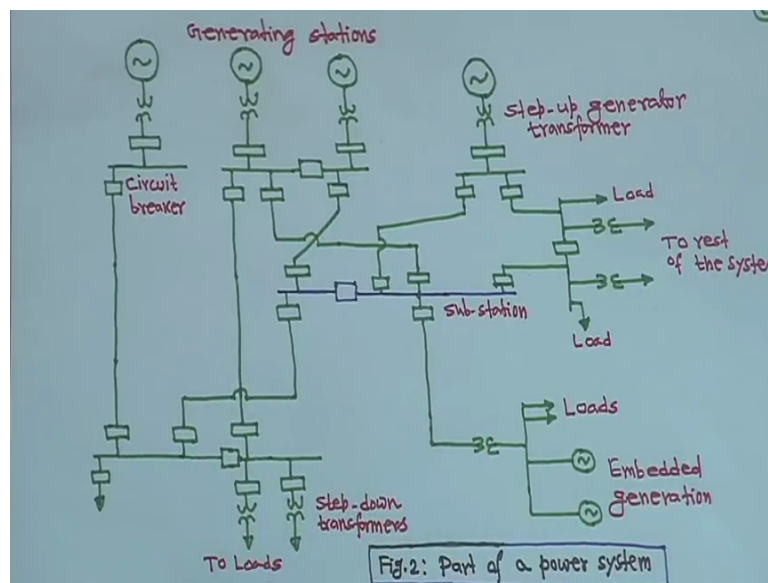 Generating stations
Step-up generator
transformer
Circuit
breaker
Load
To rest
of the system
Sub-station
Load
Loads
Embedded
generation
Step-down
transformers
To Loads
Fig.2: Part of a power system